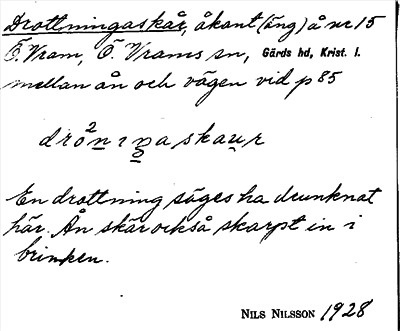 Drottningaskår, åkant (äng) å nr 15
Ö. Vram, Ö. Vrams sn, Gärds hd, Krist. l.
mellan ån och vägen vid p 85
drö²nıŋaskaur
En drottning säges ha drunknat
här. Ån skär också skarpt in i
brinken.
NILS NILSSON 1928